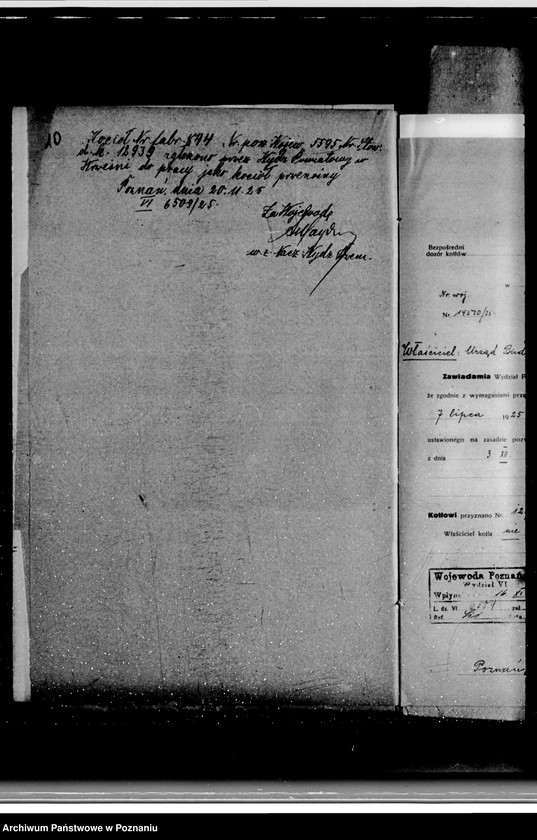 10
Kocioł Nr fabr. 844 Nr poz. Wojew. 5595 Nr Stow.
d. k. 12939 zgłoszono przez Wydz Powiatowy w
do pracy jako kocioł przenośny
Poznań, dnia 20.11.25
VI 6509/25.
Za Wojewodę
w. z. Nacz. Wydz. Przem.
Bezpośredni
dozór kotłów
w
Nr. woj.
Nr. 14270/25
Właściciel: Urząd Bud
Zawiadamia Wydział P
że zgodnie z wymaganiami prze
7 lipca 1925
ustawionego na zasadzie poz
z dnia 3 XII.
Kotłowi przyznano Nr. 12
Właściciel kotła nie
Wojewoda Poznań
Wydział VI
Wpłyn. 16. XI
L. dz. VI 6509 zał
Ref.
Poznań,
Archiwum Państwowe w Poznaniu